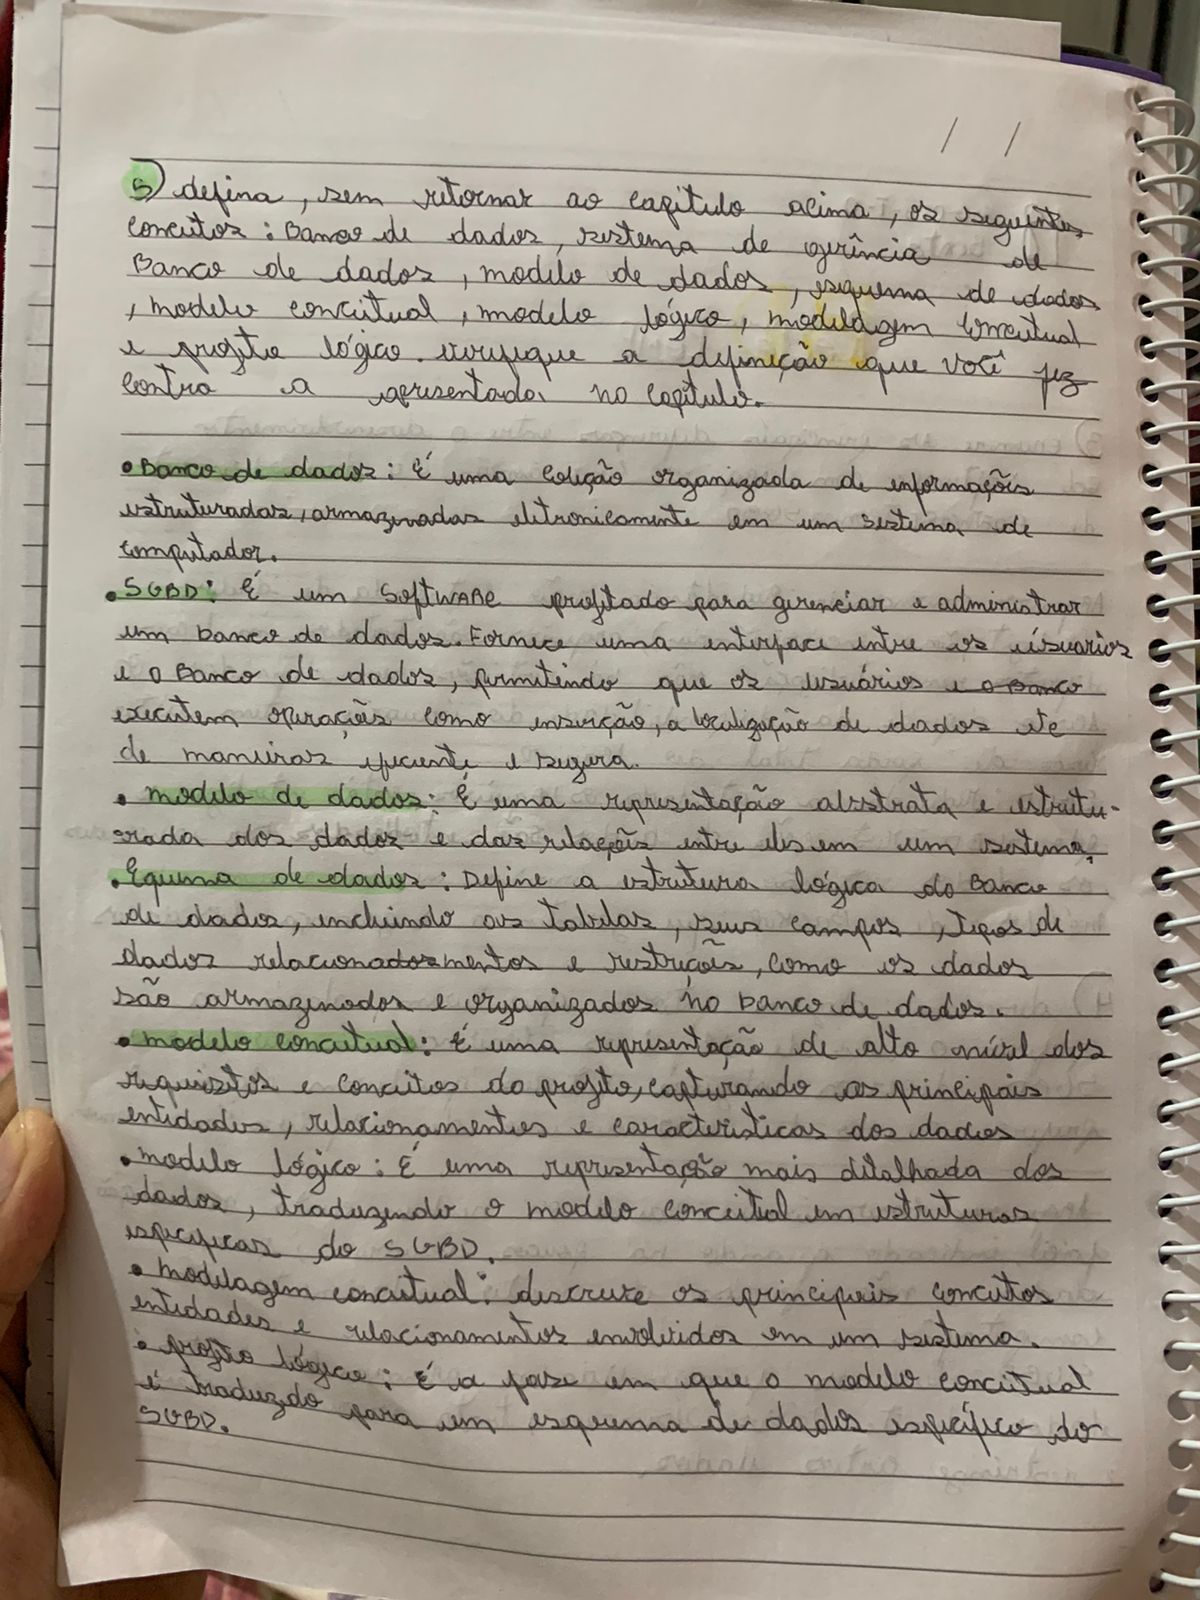 5) defina, sem retornar ao capitulo acima, os seguintes
conceitos: Banco de dados, sistema de gerência de
Banco de dados, modelo de dados, esquema de dados
, modelo conceitual, modelo lógico, modelagem conceitual
e projeto lógico. verifique a definição que você fez
contra a apresentada no capítulo.
• Banco de dados: É uma coleção organizada de informações
estruturadas, armazenadas eletronicamente em um sistema de
computador.
• SGBD: É um SoftWARE projetado para gerenciar e administrar
um banco de dados. Fornece uma interface entre os usuarios
e o Banco de dados, permitindo que os usuários e o Banco
executem operações como inserção, a localização de dados etc
de maneiras eficiente e segura.
• modelo de dados: É uma representação abstrata e estrutu-
rada dos dados e das relações entre eles em um sistema.
• Equema de dados: Define a estrutura lógica do Banco
de dados, incluindo as tabelas, seus campos, tipos de
dados relacionadosmentos e restrições, como os dados
são armazenados e organizados no banco de dados.
• modelo conceitual: É uma representação de alto nível dos
requisitos e conceitos do projeto, capturando as principais
entidades, relacionamentos e características dos dados
• modelo lógico: É uma representação mais detalhada dos
dados, traduzendo o modelo conceitual em estruturas
especificas do SGBD.
• modelagem conceitual: descreve os principais conceitos
entidades e relacionamentos envolvidos em um sistema.
• projeto lógico: É a fase em que o modelo conceitual
é traduzdo para um esquema de dados específico do
SGBD.